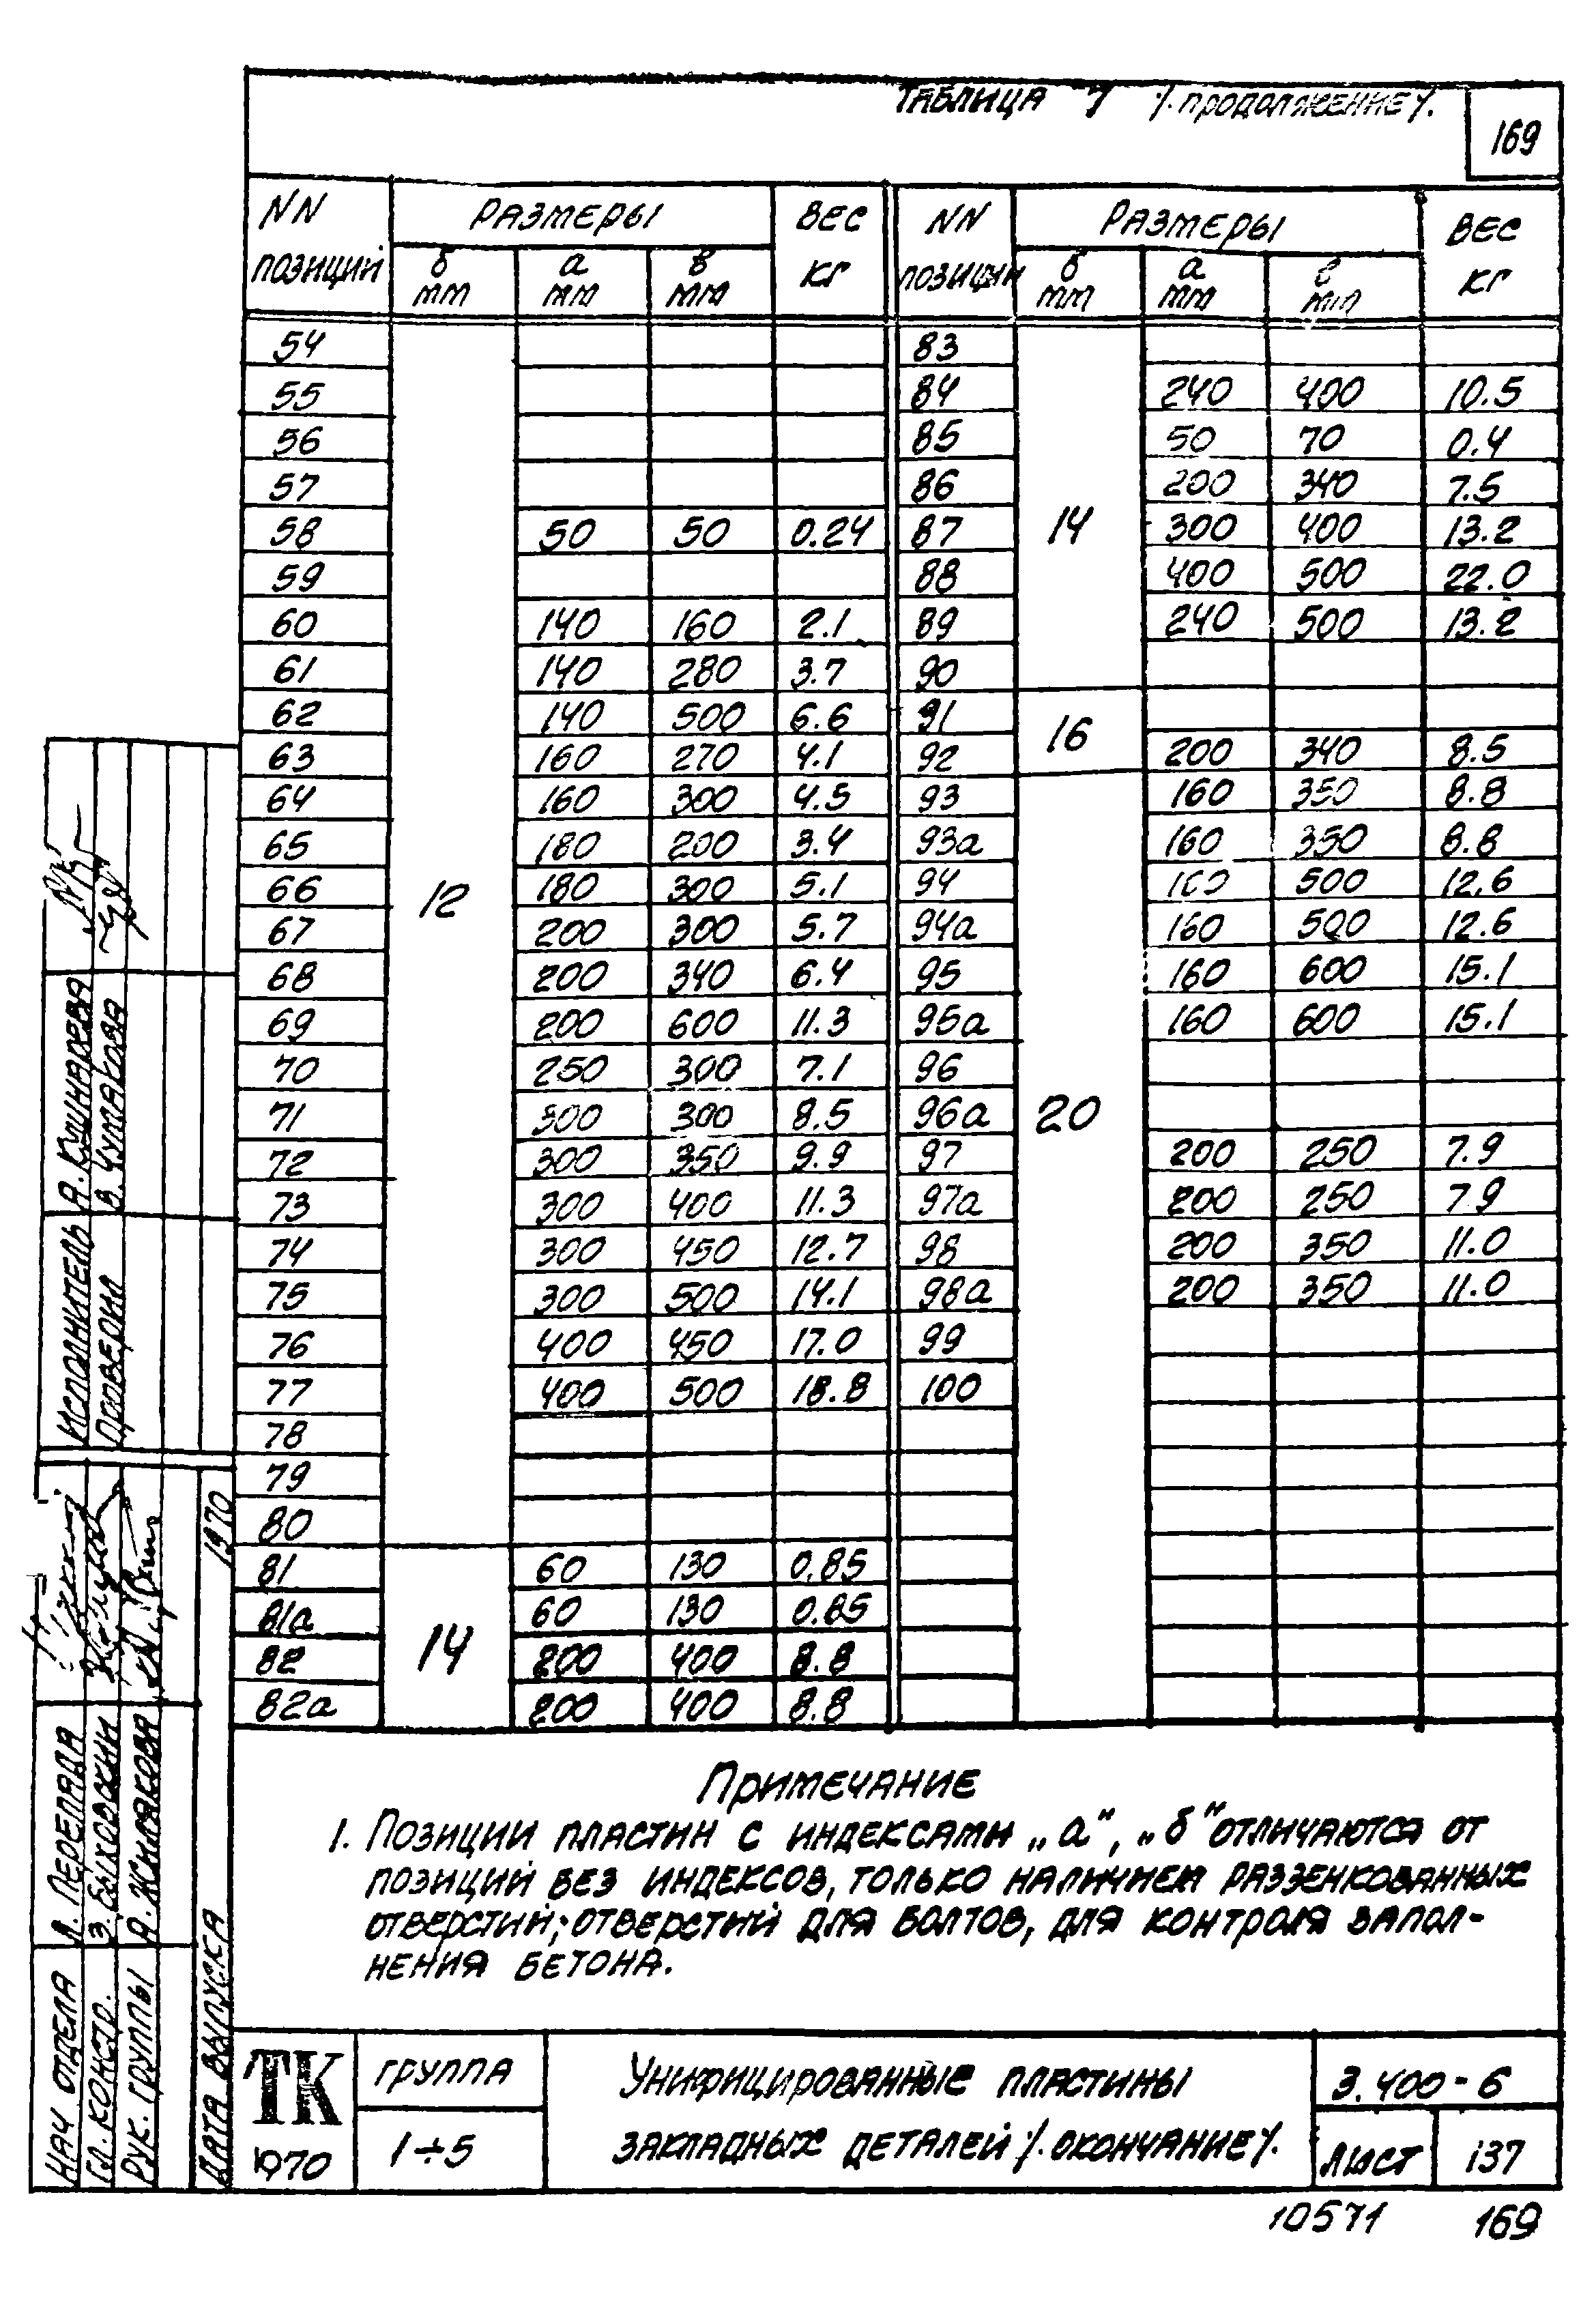 ТАБЛИЦА 7 /.ПРОДОЛЖЕНИЕ/.
169
NN ПОЗИЦИЙ РАЗМЕРЫ ВЕС КГ NN ПОЗИЦИЙ РАЗМЕРЫ ВЕС КГ
б мм а мм в мм б мм а мм в мм
54 83
55 84 240 400 10.5
56 85 50 70 0.4
57 86 200 340 7.5
58 50 50 0.24 87 14 300 400 13.2
59 88 400 500 22.0
60 140 160 2.1 89 240 500 13.2
61 140 280 3.7 90
62 140 500 6.6 91 16
63 160 270 4.1 92 200 340 8.5
64 160 300 4.5 93 160 350 8.8
65 180 200 3.4 93а 160 350 8.8
66 12 180 300 5.1 94 160 500 12.6
67 200 300 5.7 94а 160 500 12.6
68 200 340 6.4 95 160 600 15.1
69 200 600 11.3 95а 160 600 15.1
70 250 300 7.1 96
71 300 300 8.5 96а 20
72 300 350 9.9 97 200 250 7.9
73 300 400 11.3 97а 200 250 7.9
74 300 450 12.7 98 200 350 11.0
75 300 500 14.1 98а 200 350 11.0
76 400 450 17.0 99
77 400 500 18.8 100
78
79
80
81 60 130 0.85
81а 60 130 0.85
82 14 200 400 8.8
82а 200 400 8.8
Примечание
1. Позиции пластин с индексами „а", „б" отличаются от
позиций без индексов, только наличием раззенкованных
отверстий; отверстий для болтов, для контроля запол-
нения бетона.
ТК
1970
ГРУППА
1÷5
Унифицированные пластины
закладных деталей /.окончание/.
3.400-6
Лист 137
10571 169
НАЧ ОТДЕЛА Л. ПЕРЕПЯДА
ГЛ. КОНСТР. Э. БЫХОВСКИЙ
РУК. ГРУППЫ А. ЖИЛЯКОВА
ДАТА ВЫПУСКА 1970
ИСПОЛНИТЕЛЬ А. КУШНАРЕВА
ПРОВЕРИЛ В. ЧУМАКОВА